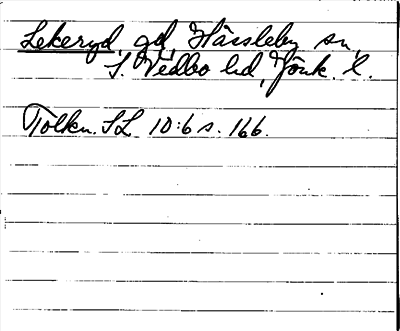 Lekeryd, gd, Hässleby sn,
S. Vedbo hd, Jönk. l.
Tolkn. SL 10:6 s. 166.